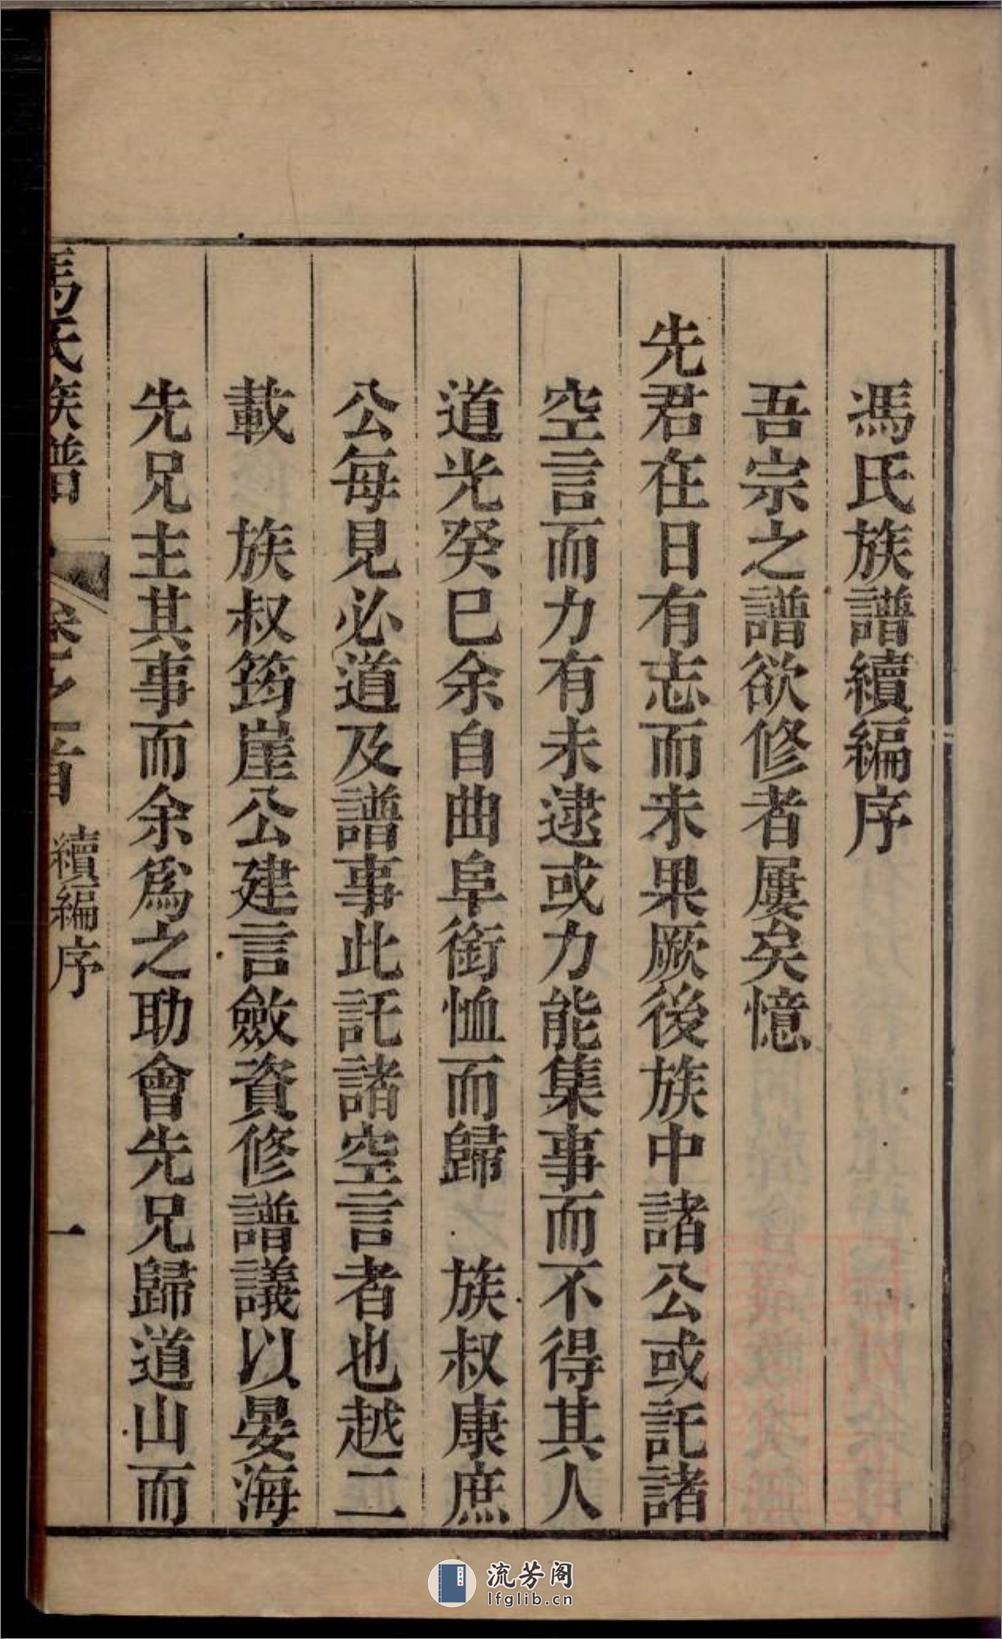 馮氏族譜續編序
吾宗之譜欲修者屢矣憶
先君在日有志而未果厥後族中諸公或託諸
空言而力有未逮或力能集事而不得其人
道光癸巳余自曲阜銜恤而歸　族叔康庶
公每見必道及譜事此託諸空言者也越二
載　族叔筠崖公建言斂資修譜議以晏海
先兄主其事而余為之助會先兄歸道山而
馮氏族譜　卷之首　續編序　一
流芳阁
lfglib.cn